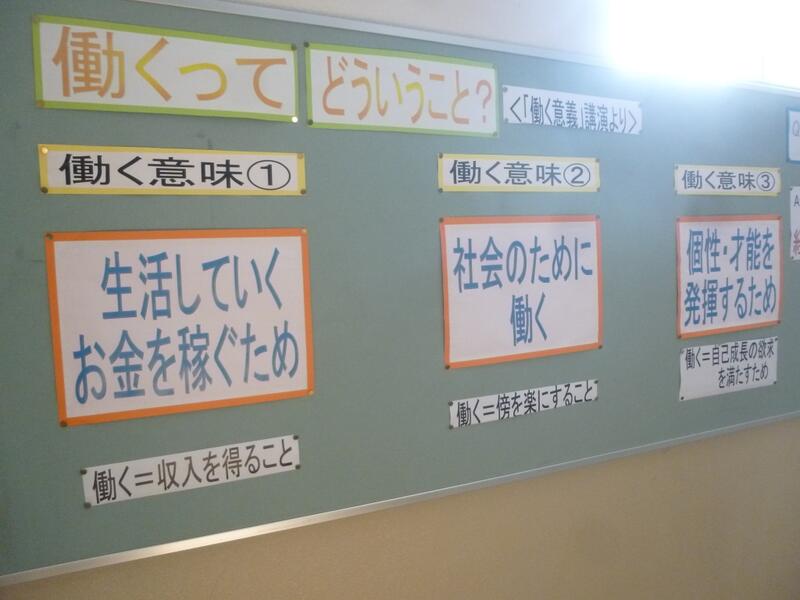 働くって
どういうこと？
＜「働く意義」講演より＞
働く意味①
生活していく
お金を稼ぐため
働く＝収入を得ること
働く意味②
社会のために
働く
働く＝傍を楽にすること
働く意味③
個性・才能を
発揮するため
働く＝自己成長の欲求
を満たすため
Q
A